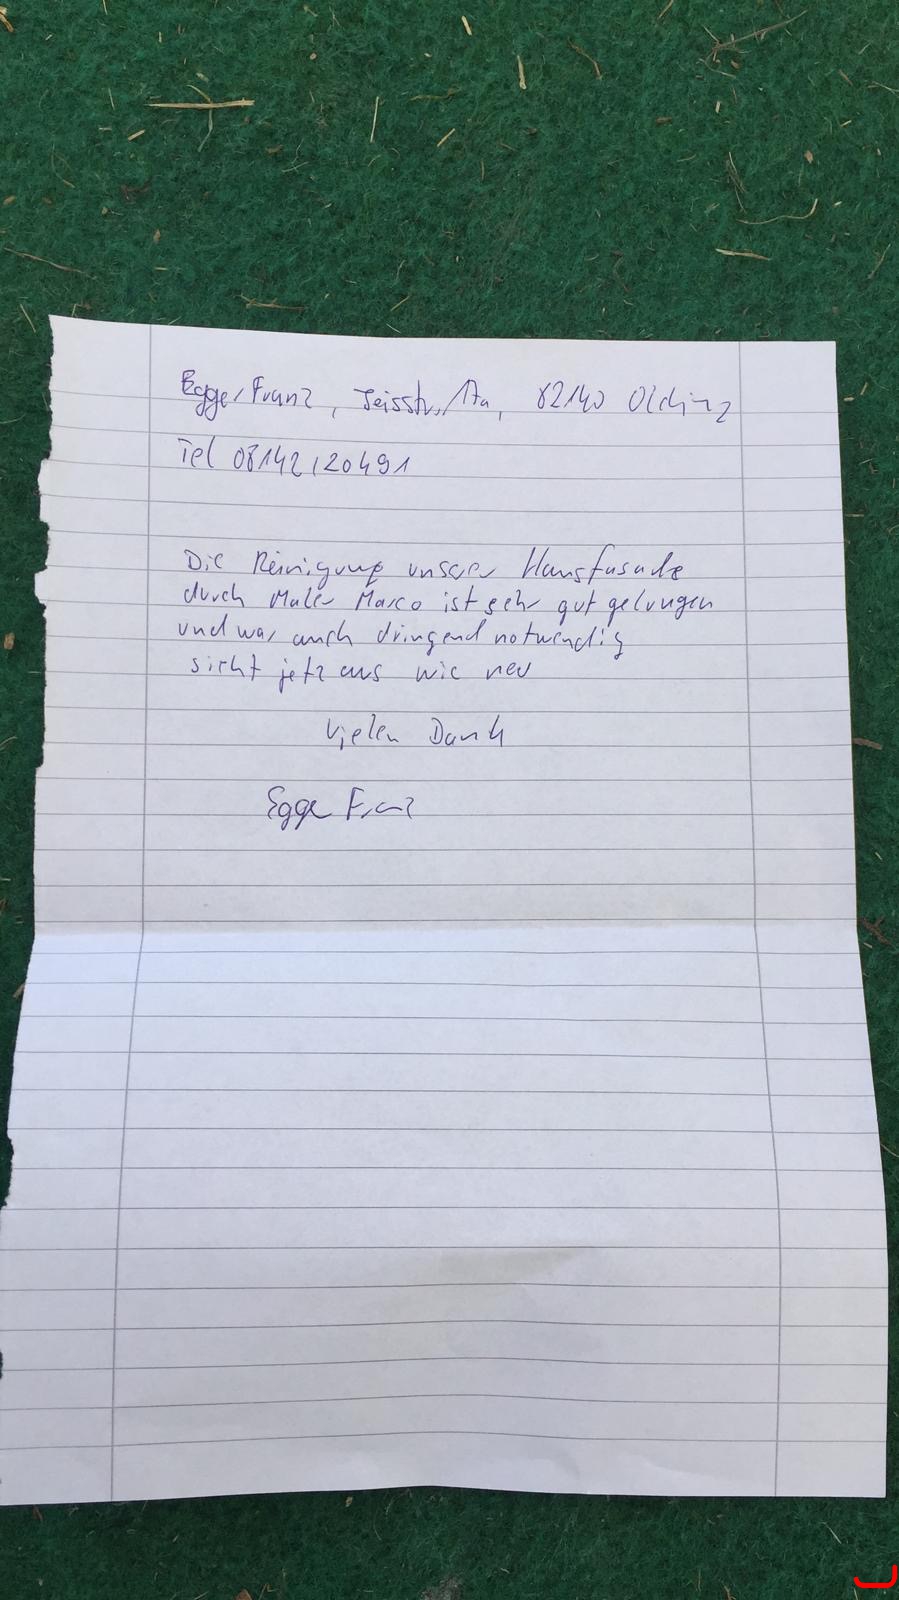 Egger Franz, Feisstr. 17a, 82140 Olching
Tel 08142/20491
Die Reinigung unserer Hausfasade
durch Maler Marco ist sehr gut gelungen
und war auch dringend notwendig
sieht jetz aus wie neu
Vielen Dank
Egger Franz